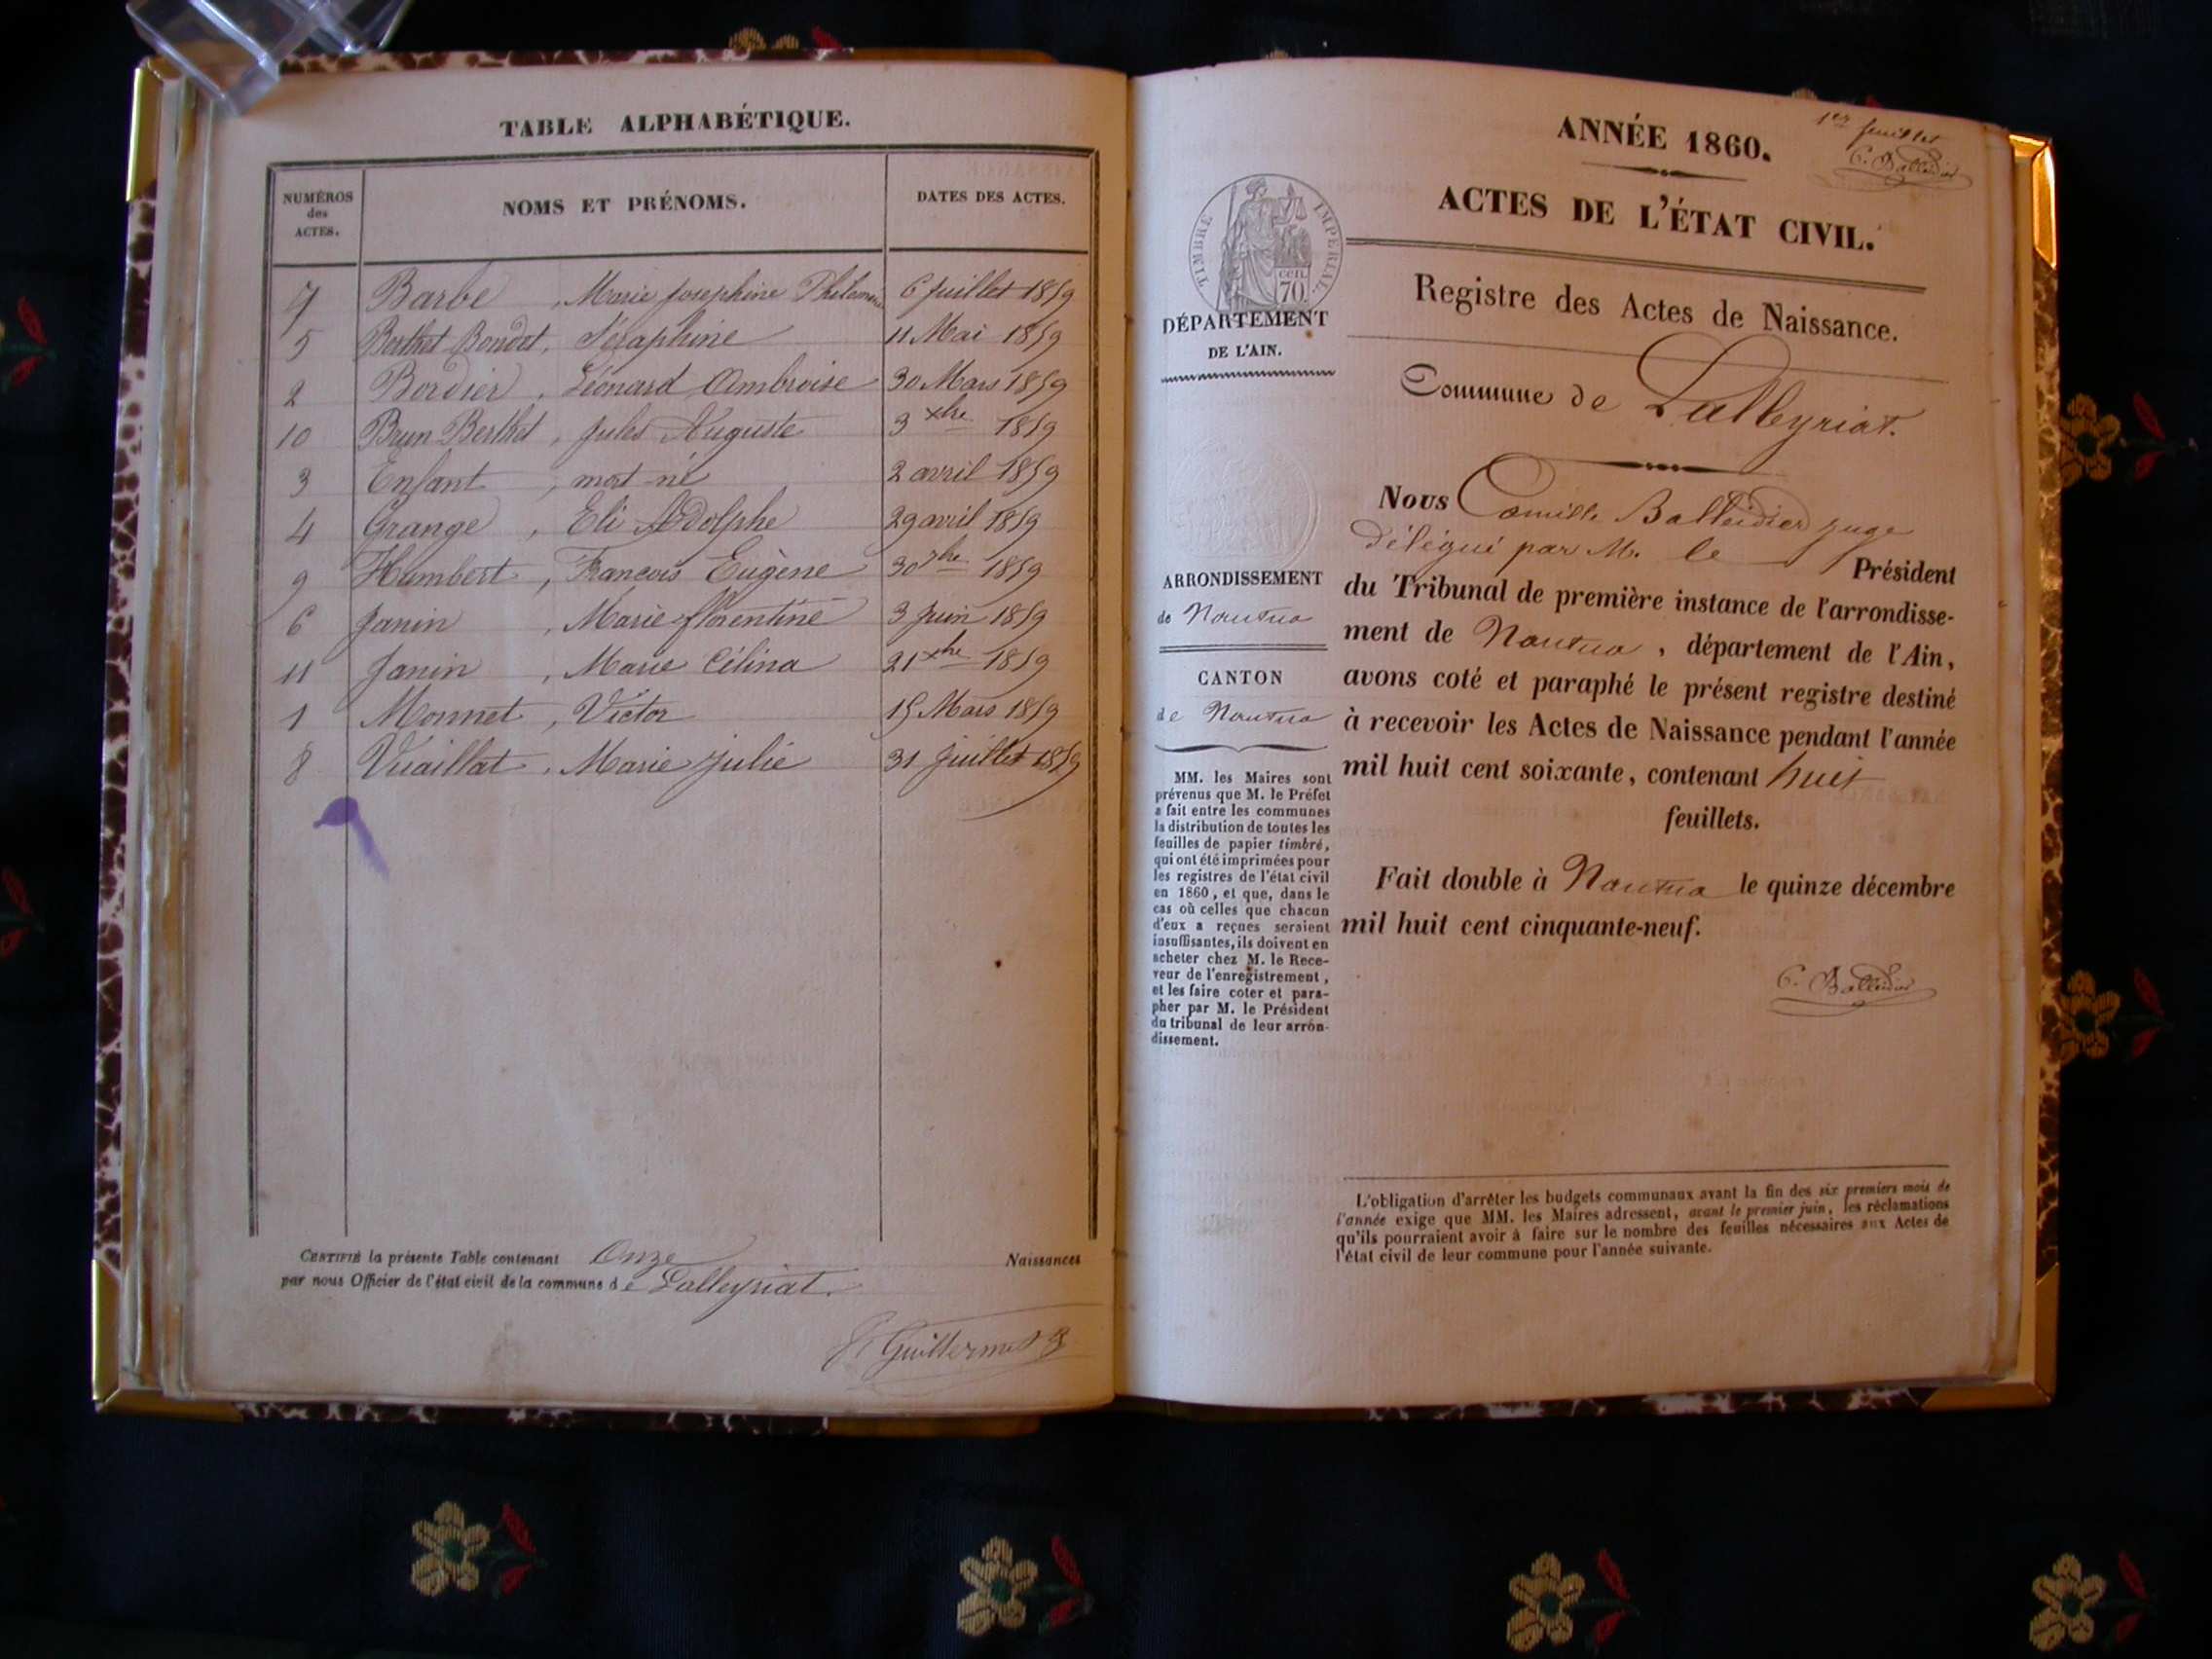 TABLE ALPHABÉTIQUE.
NUMÉROS des ACTES. NOMS ET PRÉNOMS. DATES DES ACTES.
7 Barbe, Marie Josephine Philomène 6 Juillet 1859
5 Berthet Bondet, Séraphine 11 Mai 1859
2 Bordier, Léonard Ambroise 30 Mars 1859
10 Brun Berthet, Jules Auguste 3 xbre 1859
3 Enfant, mort-né 2 avril 1859
4 Grange, Eli Adolphe 29 avril 1859
9 Humbert, Francois Eugène 30 7bre 1859
6 Janin, Marie florentine 3 Juin 1859
11 Janin, Marie Célina 21 xbre 1859
1 Monnet, Victor 15 Mars 1859
8 Vuaillat, Marie Julie 31 Juillet 1859
CERTIFIÉ la présente Table contenant Onze Naissances
par nous Officier de l'état civil de la commune de Lalleyriat.
Guillermet
1er feuillet
C. Balleidier
ANNÉE 1860.
ACTES DE L'ÉTAT CIVIL.
TIMBRE IMPERIAL.
cen.
70
Registre des Actes de Naissance.
DÉPARTEMENT
DE L'AIN.
Commune de Lalleyriat.
ARRONDISSEMENT
de Nantua
CANTON
de Nantua
MM. les Maires sont
prévenus que M. le Préfet
a fait entre les communes
la distribution de toutes les
feuilles de papier timbré,
qui ont été imprimées pour
les registres de l'état civil
en 1860, et que, dans le
cas où celles que chacun
d'eux a reçues seraient
insuffisantes, ils doivent en
acheter chez M. le Rece-
veur de l'enregistrement,
et les faire coter et para-
pher par M. le Président
du tribunal de leur arron-
dissement.
Nous Camille Balleidier juge
délégué par M. le Président
du Tribunal de première instance de l'arrondisse-
ment de Nantua, département de l'Ain,
avons coté et paraphé le présent registre destiné
à recevoir les Actes de Naissance pendant l'année
mil huit cent soixante, contenant huit
feuillets.
Fait double à Nantua le quinze décembre
mil huit cent cinquante-neuf.
C. Balleidier
L'obligation d'arrêter les budgets communaux avant la fin des six premiers mois de
l'année exige que MM. les Maires adressent, avant le premier juin, les réclamations
qu'ils pourraient avoir à faire sur le nombre des feuilles nécessaires aux Actes de
l'état civil de leur commune pour l'année suivante.